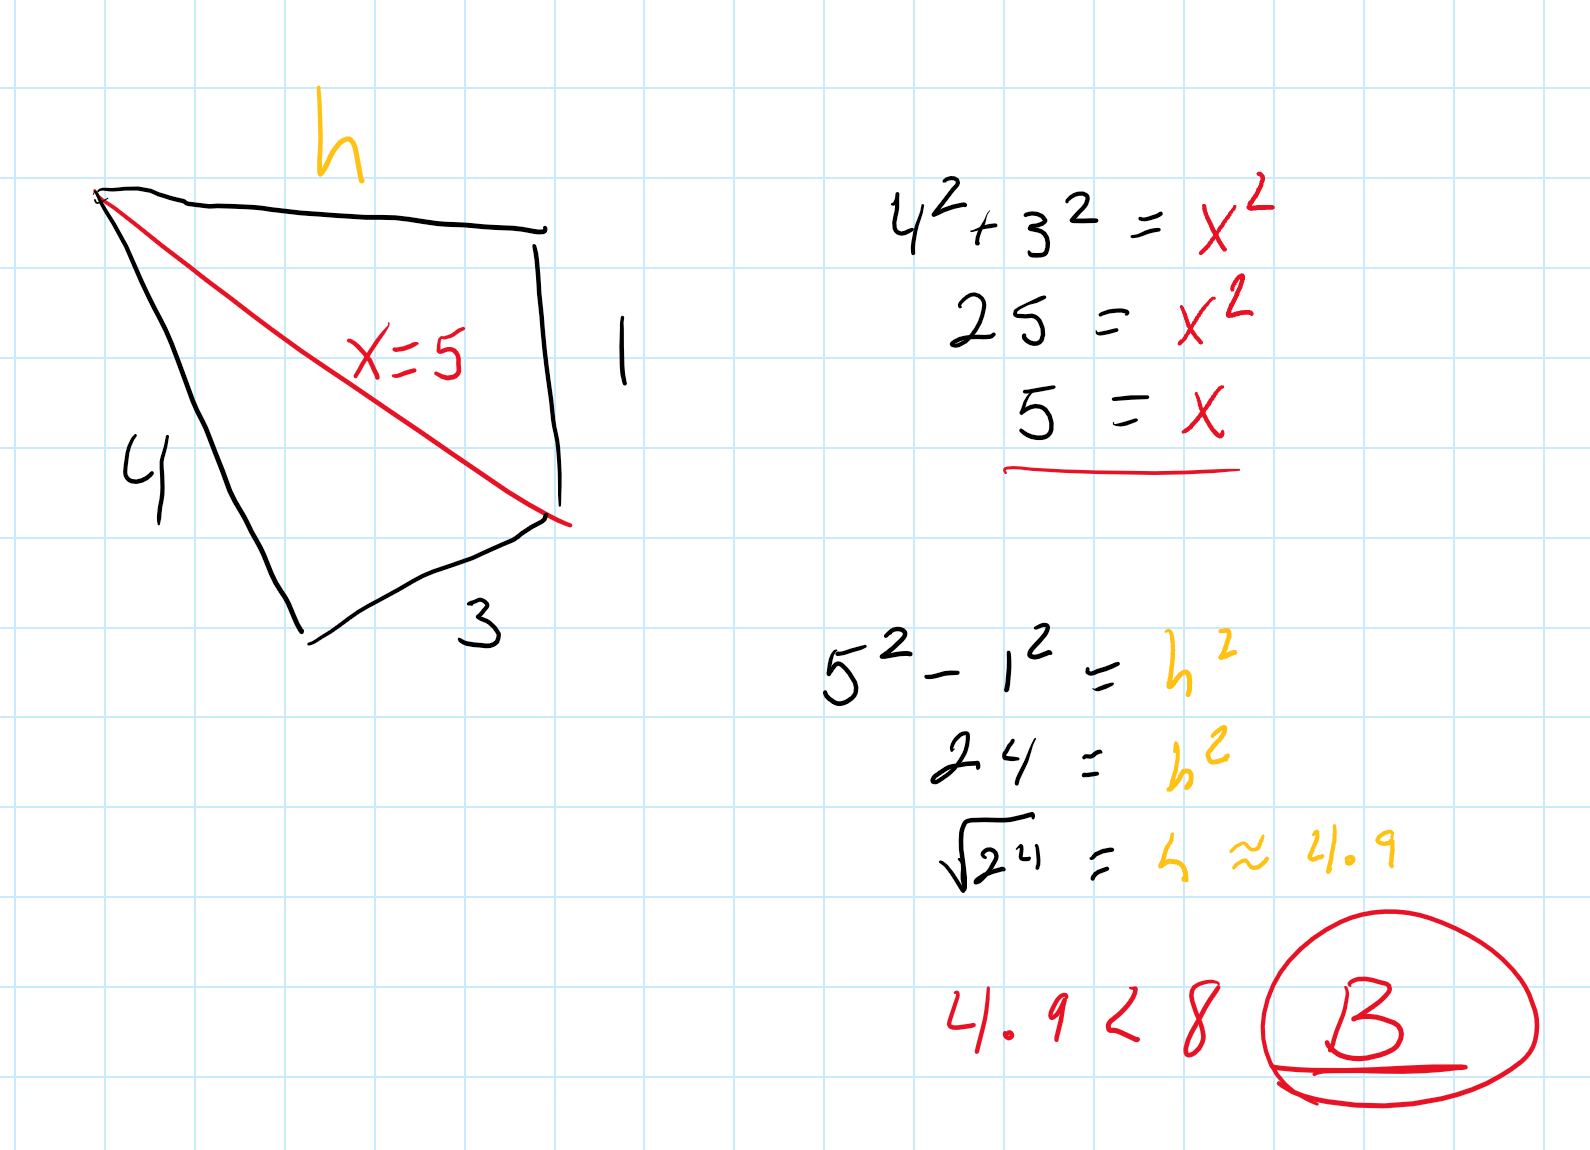 h
x=5
1
4
3
4² + 3² = x²
25 = x²
5 = x
5² - 1² = h²
24 = h²
√24 = h ≈ 4.9
4.9 < 8 B